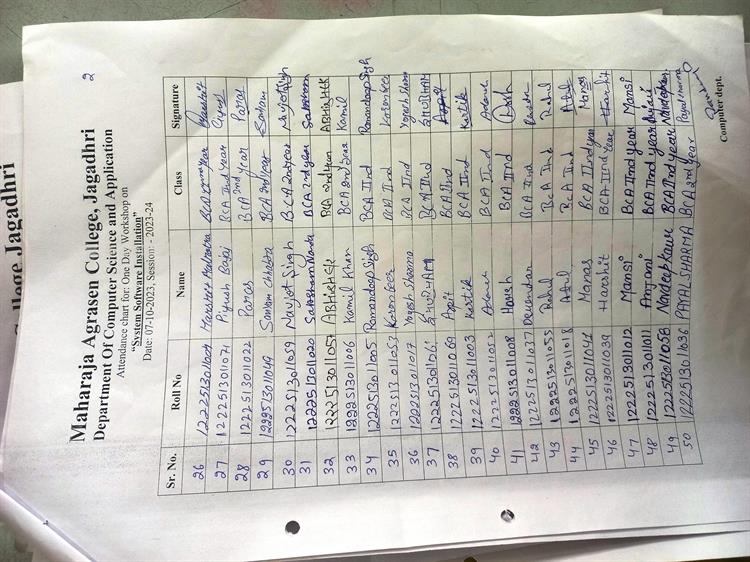 2
Maharaja Agrasen College, Jagadhri
Department Of Computer Science and Application
Attendance chart for: One Day Workshop on
"System Software Installation"
Date: 07-10-2023, Session: - 2023-24
Sr. No. Roll No Name Class Signature
26 BCA
27 1222513011071 Piyush BCA IInd year Piyush
28 1222513011022 Paras BCA 2nd year Paras
29 1222513011049 BCA 2nd year
30 1222513011059 Navjot Singh BCA 2nd year Navjot Singh
31 1222513011020 BCA 2nd year
32 1222513011053 ABHISHEK BCA 2nd year ABHISHEK
33 1222513011006 Kamil Khan BCA 2nd year Kamil
34 1222513011005 Ramandeep Singh BCA IInd Ramandeep Singh
35 Karanveer BCA IInd Karanveer
36 1222513011017 Yogesh Sharma BCA IInd Yogesh Sharma
37 BCA IInd
38 Arpit BCA IInd
39 1222513011003 Kartik BCA IInd Kartik
40 BCA IInd
41 1222513011008 BCA IInd
42 1222513011037 Devender BCA IInd
43 1222513011055 Rahul BCA IInd Rahul
44 1222513011018 Atul BCA IInd Atul
45 Manas BCA IInd year Manas
46 1222513011039 Harshit BCA IInd year Harshit
47 1222513011012 Mansi BCA IInd year Mansi
48 1222513011011 BCA IInd year
49 1222513011058 Navdeep Kaur BCA IInd year
50 1222513011036 PAYAL SHARMA BCA 2nd year Payal sharma
Computer dept.
College Jagadhri